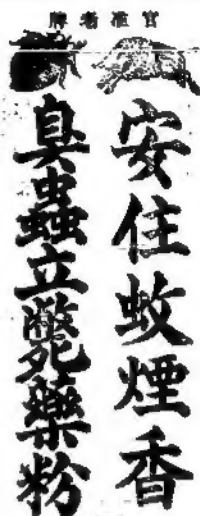 官准着牌
安住蚊煙香
臭蟲立斃藥粉